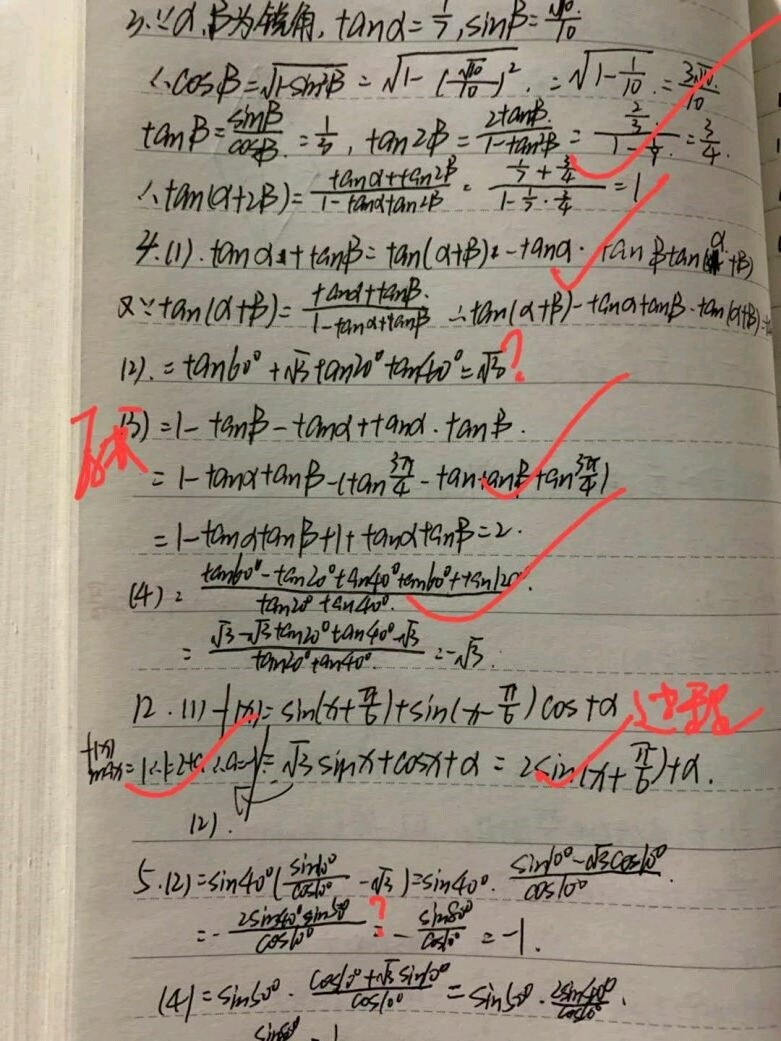 3.∵α,β为锐角, tanα=1/7, sinβ=√10/10
∴cosβ=√(1-sin²β) = √(1-(√10/10)²) = √(1-1/10) = 3√10/10
tanβ=sinβ/cosβ=1/3, tan2β=2tanβ/(1-tan²β)=(2/3)/(1-1/9)=3/4.
∴tan(α+2β)=(tanα+tan2β)/(1-tanαtan2β)=(1/7+3/4)/(1-1/7·3/4)=1
4.(1).tanα+tanβ=tan(α+β)-tanα·tanβtan(α+β)
又∵tan(α+β)=(tanα+tanβ)/(1-tanαtanβ) ∴tan(α+β)-tanαtanβ·tan(α+β)=
(2).=tan60°+√3tan20°tan40°=√3 ?
(3)=1-tanβ-tanα+tanα·tanβ.
=1-tanαtanβ-(tan3π/4-tan tanβtan3π/4)
=1-tanαtanβ+1+tanαtanβ=2.
(4)=(tan60°-tan20°tan40°tan60°+tan120°)/(tan20°tan40°).
=(√3-√3tan20°tan40°-√3)/(tan20°tan40°)=-√3.
12.(1)f(x)=sin(x+π/6)+sin(x-π/6)cos+a 过程
f(x)max=1∴1=2+a.∴a=-1 =√3sinx+cosx+a=2sin(x+π/6)+a.
(2).
5.(2)=sin40°(sin10°/cos10°-√3)=sin40°·(sin10°-√3cos10°)/cos10°
=-2sin40°sin50°/cos10° ? =-sin80°/cos10°=-1.
(4)=sin50°·(cos10°+√3sin10°)/cos10°=sin50°·2sin40°/cos10°.